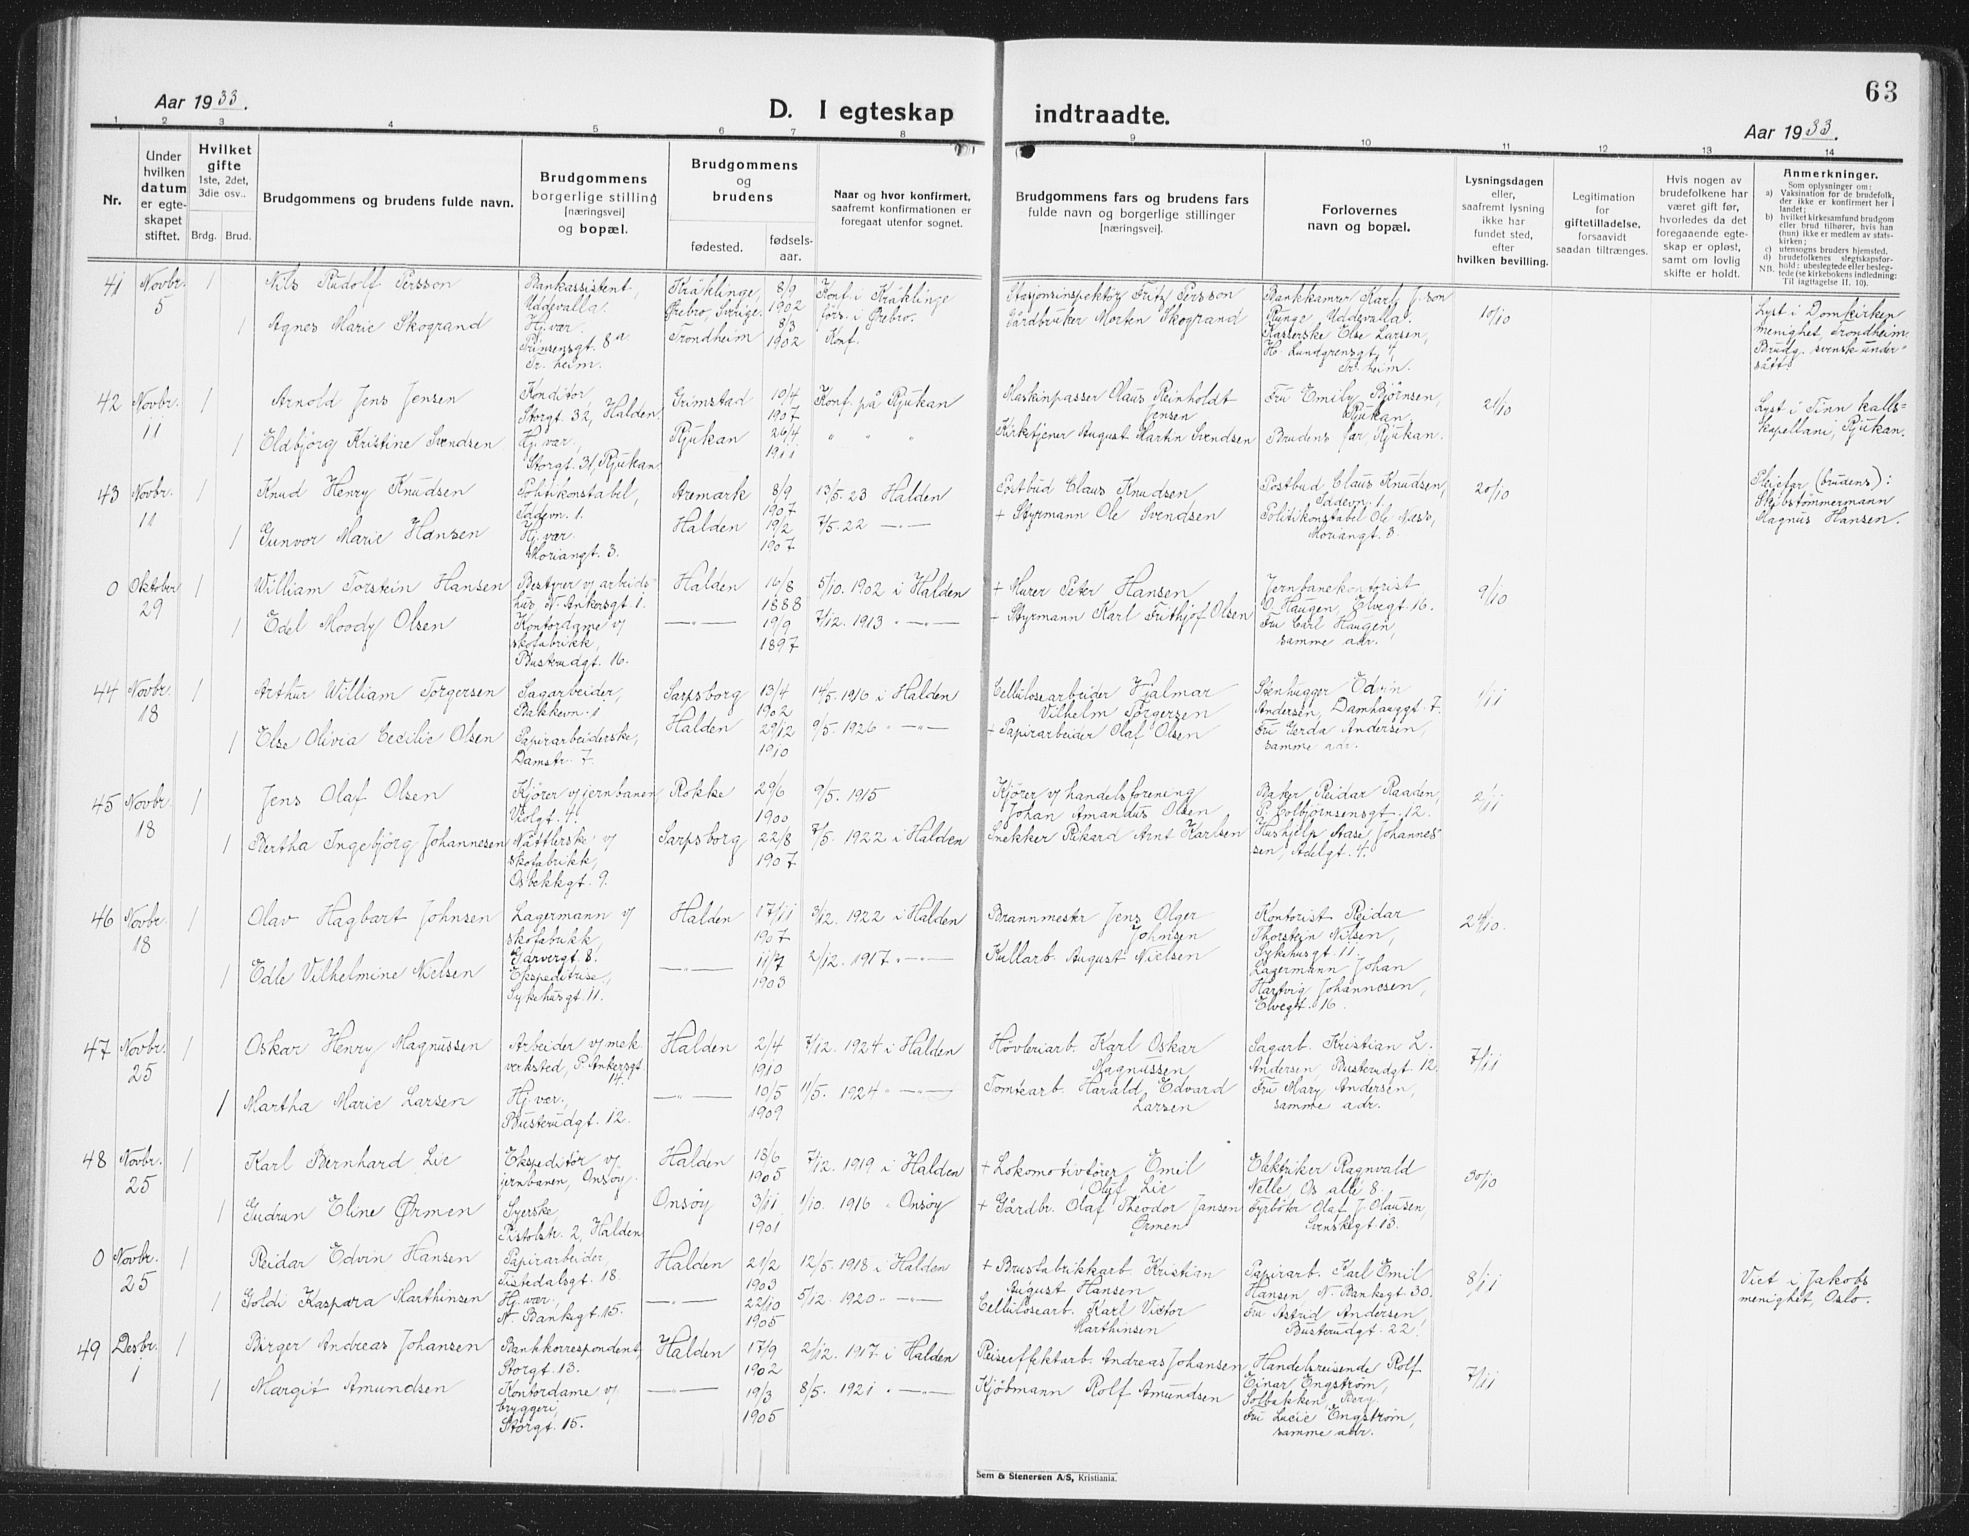 63
Aar 1933.
D. I egteskap indtraadte.
Aar 1933.
1 2 3 4 5 6 7 8 9 10 11 12 13 14
Nr.
Under
hvilken
datum
er egte-
skapet
stiftet.
Hvilket
gifte
1ste, 2det,
3die osv..
Brdg. Brud.
Brudgommens og brudens fulde navn.
Brudgommens
borgerlige stilling
[næringsvei]
og bopæl.
Brudgommens
og
brudens
fødested.
fødsels-
aar.
Naar og hvor konfirmert,
saafremt konfirmationen er
foregaat utenfor sognet.
Brudgommens fars og brudens fars
fulde navn og borgerlige stillinger
[næringsvei].
Forlovernes
navn og bopæl.
Lysningsdagen
eller,
saafremt lysning
ikke har
fundet sted,
efter
hvilken bevilling.
Legitimation
for
giftetilladelse,
forsaavidt
saadan tiltrænges.
Hvis nogen av
brudefolkene har
været gift før,
hvorledes da det
foregaaende egte-
skap er opløst,
samt om lovlig
skifte er holdt.
Anmerkninger.
Som oplysninger om:
a) Vaksination for de brudefolk,
der ikke er konfirmert her i
landet;
b) hvilket kirkesamfund brudgom
eller brud tilhører, hvis han
(hun) ikke er medlem av stats-
kirken;
c) utensogns bruders hjemsted.
d) brudefolkenes slegtskapsfor-
hold: ubeslegtede eller besleg-
tede (se kirkebokens indledning:
NB. Til iagttagelse II. 10).
41 Novbr. 5
1 Nils Rudolf Persson
Bankassistent,
Uddevalla.
Kräklinge,
Ørebro, Sverige.
8/9
1902
Konf. i Kräklinge
førs. i Ørebro.
Stasjonsinspektör Fritz Persson
Bankkamrer Karl J:son
Runge, Uddevalla.
10/10
Lyst i Domkirken
menighet, Trondheim.
Brudg. svensk under-
sått.
1 Agnes Marie Skogrand
Hj. vær.
Prinsensgt. 8a
Tr. heim.
Trondheim
8/3
1902
Konf.
Gårdbruker Morten Skogrand
Kasserske Else Larsen,
H. Lundgrensgt. 4,
Tr. heim.
42 Novbr. 11
1 Arnold Jens Jensen
Konditor,
Storgt. 32, Halden
Grimstad
19/4
1907
Konf. på Rjukan
Maskinpasser Claus Reinholdt
Jensen
Fru Emily Bjørnsen,
Rjukan.
21/10
Lyst i Tinn kalls-
kapellani, Rjukan.
1 Eldbjörg Kristine Svendsen
Hj. vær.
Storgt. 31, Rjukan
Rjukan
26/4
1911
" " "
Kirketjener August Martin Svendsen
Brudens far, Rjukan.
43 Novbr. 11
1 Knud Henry Knudsen
Politikonstabel,
Iddevn. 1.
Aremark
8/9
1907
13/5. 23 Halden
Postbud Claus Knudsen
Postbud Claus Knudsen,
Iddevn. 1.
20/10
Pleiefar (brudens):
Skibstømmermann
Magnus Hansen.
1 Gunvor Marie Hansen
Hj. vær.
Moriangt. 3.
Halden
19/2
1907
7/5. 22 —"—
+ Styrmann Ole Svendsen
Politikonstabel Ole Næss,
Moriangt. 3.
0 Oktober 29
1 William Torstein Hansen
Bestyrer v/ arbeids-
hus, N. Ankersgt. 1.
Halden
16/8
1888
5/10. 1902 i Halden
+ Murer Peter Hansen
Jernbanekontorist
O. Haugen, Elvegt. 16.
9/10
1 Edel Moody Olsen
Kontordame v/
skofabrikk,
Busterudgt. 16.
—"—
19/9
1897
7/12. 1913 " —"—
+ Styrmann Karl Frithjof Olsen
Fru Carl Haugen,
samme adr.
44 Novbr. 18
1 Arthur William Torgersen
Sagarbeider,
Bakkevn. 1
Sarpsborg
13/4
1902
14/5. 1916 i Halden
Cellulosearbeider Hjalmar
Vilhelm Torgersen
Stenhugger Edvin
Andersen, Damhauggt. 7.
1/11
1 Else Olivia Cecilie Olsen
Papirarbeiderske,
Damstr. 7.
Halden
29/12
1910
9/5. 1926 —"—
+ Papirarbeider Olaf Olsen
Fru Gerda Andersen,
samme adr.
45 Novbr. 18
1 Jens Olaf Olsen
Kjører v/ jernbanen
Violgt. 4.
Rokke
29/6
1900
9/5. 1915
Kjører v/ handelsforening
Johan Amandus Olsen
Baker Reidar Raaden,
P. Colbjørnsensgt. 12.
2/11
1 Bertha Ingebjörg Johannesen
Nåttlerske v/
skofabrikk,
Osbekkgt. 9.
Sarpsborg
22/8
1907
7/5. 1922 i Halden
Snekker Rikard Arnt Karlsen
Hushjelp Aase Johannes-
sen, Adelgt. 4.
46 Novbr. 18
1 Olav Hagbart Johnsen
Lagermann v/
skofabrikk,
Garvergt. 8.
Halden
17/11
1907
3/12. 1922 i Halden
Brannmester Jens Olger
Johnsen
Kontorist Reidar
Thorstein Nilsen,
Sykehusgt. 11.
24/10.
1 Edle Vilhelmine Nielsen
Ekspeditrise,
Sykehusgt. 11.
—"—
11/7
1903
2/12. 1917 " —"—
Kullarb. August Nielsen
Lagermann Johan
Hartvig Johannesen,
Elvegt. 16.
47 Novbr. 25
1 Oskar Henry Magnussen
Arbeider v/ mek.
verksted, P. Ankersgt.
14.
Halden
2/4
1910
7/12. 1924 i Halden
Høvleriarb. Karl Oskar
Magnussen
Sagarb. Kristian L.
Andersen, Busterudgt. 12.
7/11
1 Martha Marie Larsen
Hj. vær.,
Busterudgt. 12.
—"—
10/5
1909
11/5. 1924 " —"—
Tomtearb. Harald Edvard
Larsen
Fru Mary Andersen,
samme adr.
48 Novbr. 25
1 Karl Bernhard Lie
Ekspeditör v/
jernbanen, Onsøy.
Halden
18/6
1905
7/12. 1919 i Halden
+ Lokomotivfører Emil
Oluf Lie
Elektriker Ragnvald
Nelle, Os allé 8.
30/10
1 Gudrun Eline Ørmen
Syerske,
Pistolstr. 2, Halden
Onsøy
3/11
1901
1/10. 1916 " Onsøy
+ Gårdbr. Olaf Theodor Jansen
Ørmen
Fyrbøter Olaf J. Olausen,
Svenskegt. 13.
0 Novbr. 25
1 Reidar Edvin Hansen
Papirarbeider,
Tistedalsgt. 18.
Halden
21/2
1903
12/5. 1918 i Halden
+ Brusfabrikkarb. Kristian
August Hansen
Papirarb. Karl Emil
Hansen, N. Bankegt. 30.
8/11
Viet i Jakobs
menighet, Oslo.
1 Goldi Kaspara Marthinsen
Hj. vær.,
N. Bankegt. 15.
—"—
22/10
1905
5/12. 1920 " —"—
Cellulosearb. Karl Victor
Marthinsen
Fru Astrid Andersen,
Busterudgt. 22.
49 Desbr. 1
1 Birger Andreas Johansen
Bankkorrespondent,
Storgt. 13.
Halden
17/9
1902
2/12. 1917 i Halden
Reiseeffektarb. Andreas Johansen
Handelsreisende Rolf
Einar Engstrøm,
Solbakken, Berg.
7/11
1 Margit Amundsen
Kontordame v/
bryggeri,
Storgt. 15.
—"—
19/3
1905
8/5. 1921 " —"—
Kjöbmann Rolf Amundsen
Fru Lucie Engstrøm,
samme adr.
Sem & Stenersen A/S, Kristiania.